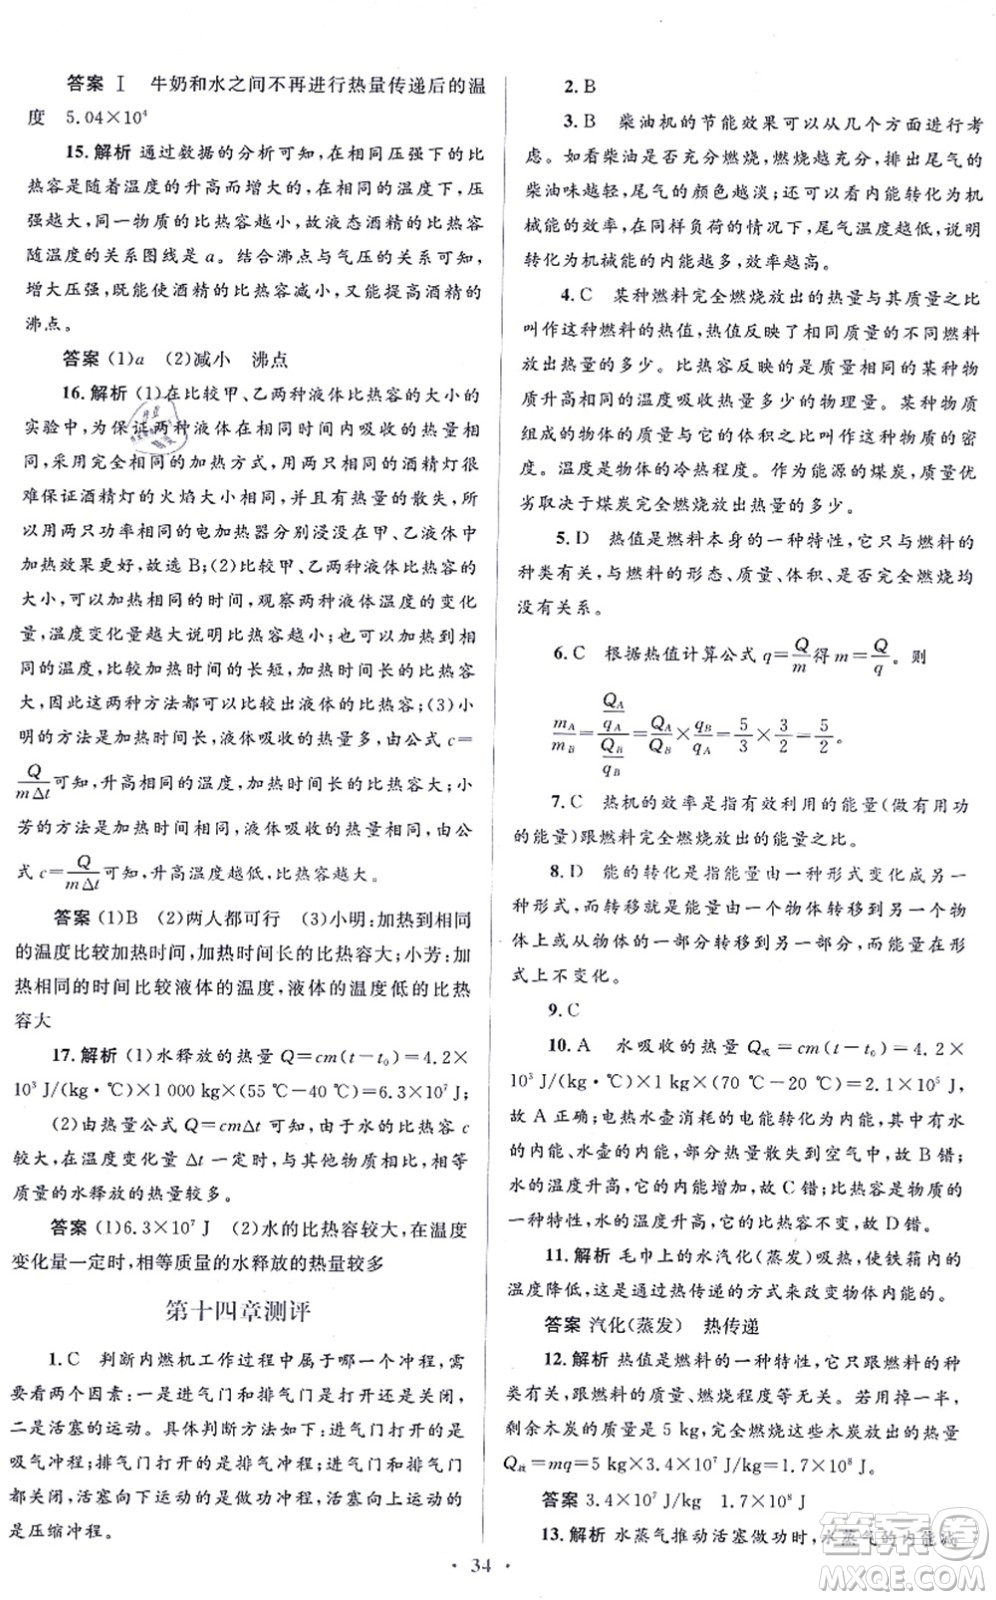 答案 Ⅰ 牛奶和水之间不再进行热量传递后的温
度 5.04×10⁴
15.解析 通过数据的分析可知,在相同压强下的比
热容是随着温度的升高而增大的,在相同的温度下,压
强越大,同一物质的比热容越小,故液态酒精的比热容
随温度的关系图线是 a。结合沸点与气压的关系可知,
增大压强,既能使酒精的比热容减小,又能提高酒精的
沸点。
答案 (1)a (2)减小 沸点
16.解析 (1)在比较甲、乙两种液体比热容的大小的
实验中,为保证两种液体在相同时间内吸收的热量相
同,采用完全相同的加热方式,使用两只的酒精灯很
难保证酒精灯的火焰大小相同,并且有热量的散失,所
以用两只功率相同的电加热器分别浸没在甲、乙液体中
加热效果更好,故选 B;(2)比较甲、乙两种液体比热容的
大小,可以加热相同的时间,观察两种液体温度的变化
量,温度变化量越大说明比热容越小;也可以升高到相
同的温度,比较加热时间的长短,加热时间长的比热容
大,因此这两种方法都可以比较出液体的比热容;(3)小
明的方法是加热时间越长,液体吸收的热量多,由公式 c=
Q/mΔt可知,升高相同的温度,加热时间长的比热容大;小
芳的方法是加热时间相同,液体吸收的热量相同,由公
式 c=Q/mΔt可知,升高温度越低,比热容越大。
答案 (1)B (2)两人都可行 (3)小明:加热到相同
的温度比较加热时间,加热时间长的比热容大;小芳:加
热相同的时间比较液体的温度,液体的温度低的比热
容大
17.解析 (1)水释放的热量 Q=cm(t-t₀)=4.2×
10³ J/(kg·℃)×1 000 kg×(55 ℃-40 ℃)=6.3×10⁷ J;
(2)由热量公式 Q=cmΔt 可知,由于水的比热容 c
较大,在温度变化量 Δt 一定时,与其他物质相比,相等
质量的水释放的热量较多。
答案 (1)6.3×10⁷ J (2)水的比热容较大,在温度
变化量一定时,相等质量的水释放的热量较多
第十四章测评
1.C 判断内燃机工作过程中属于哪一个冲程,需
要看两个因素:一是进气门和排气门是打开还是关闭,
二是活塞的运动。具体判断方法如下:进气门打开的
是吸气冲程;排气门打开的是排气冲程;进气门和排气
门都关闭,活塞向下运动的是做功冲程,活塞向上运动的
是压缩冲程。
2.B
3.B 柴油机的节能效果可以从几个方面进行考
虑。如看柴油是否充分燃烧,燃烧越充分,排出尾气的
柴油味越轻,尾气的颜色越淡;还可以看内能转化为机
械能的效率,在同样负荷的情况下,尾气温度越低,说明
转化为机械能的内能越多,效率越高。
4.C 某种燃料完全燃烧放出的热量与其质量之比
叫作这种燃料的热值,热值反映了相同质量的不同燃料
放出热量的多少。比热容反映的是相同质量的某种物
质升高相同的温度吸收热量多少的物理量。某种物质
组成的物体的质量与它的体积之比叫作这种物质的密
度。温度是物体的冷热程度。作为能源的煤炭,质量优
劣取决于煤炭完全燃烧放出热量的多少。
5.D 热值是燃料本身的一种特性,它只与燃料的
种类有关,与燃料的形态、质量、体积、是否完全燃烧均
没有关系。
6.C 根据热值计算公式 q=Q/m得 m=Q/q。则
m_A/m_B=(Q_A/q_A)/(Q_B/q_B)=Q_A/Q_B×q_B/q_A=5/3×3/2=5/2。
7.C 热机的效率是指有效利用的能量(做有用功
的能量)跟燃料完全燃烧放出的能量之比。
8.D 能的转化是指能量由一种形式变化成另
一种形式,而转移就是能量由一个物体转移到另一个物
体上或从物体的一部分转移到另一部分,而能量在形
式上不变化。
9.C
10.A 水吸收的热量 Q吸=cm(t-t₀)=4.2×
10³ J/(kg·℃)×1 kg×(70 ℃-20 ℃)=2.1×10⁵ J,
故 A 正确;电热水壶消耗的电能转化为内能,其中有水
的内能、水壶的内能,还有部分热量散失到空气中,故 B 错;
水的温度升高,它的内能增大,故 C 错;比热容是物质的
一种特性,水的温度升高,它的比热容不变,故 D 错。
11.解析 毛巾上的水汽化(蒸发)吸热,使铁箱内的
温度降低,这是通过热传递的方式来改变物体内能的。
答案 汽化(蒸发) 热传递
12.解析 热值是燃料的一种特性,它只跟燃料的种
类有关,与燃料的质量、燃烧程度等无关。若用掉一半,
剩余木炭的质量是 5 kg,完全燃烧这些木炭放出的热量
Q放=mq=5 kg×3.4×10⁷ J/kg=1.7×10⁸ J。
答案 3.4×10⁷ J/kg 1.7×10⁸ J
13.解析 水蒸气推动活塞做功时,水蒸气的内能减
· 34 ·
答案圈
MXQE.COM